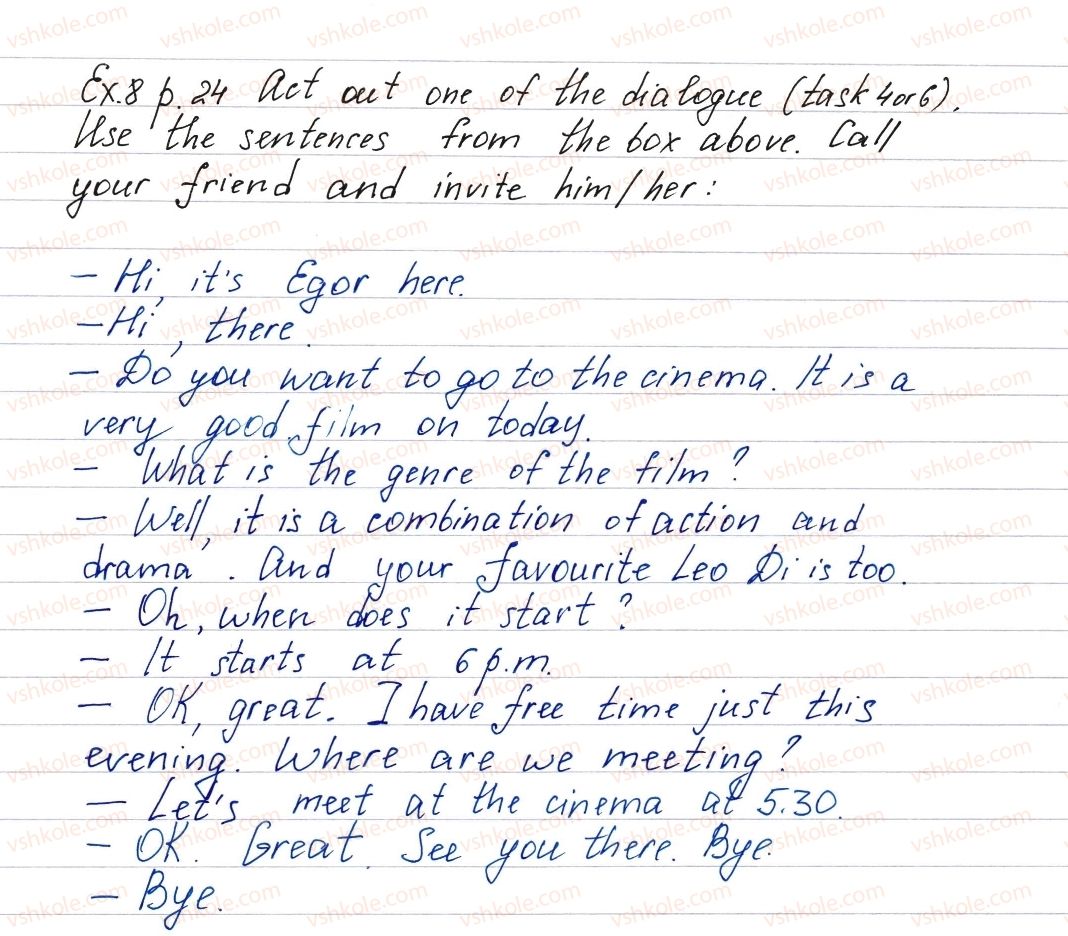 Ex.8 p.24 Act out one of the dialogue (task 4 or 6).
Use the sentences from the box above. Call
your friend and invite him/her:
– Hi, it's Egor here.
– Hi, there.
– Do you want to go to the cinema. It is a
very good film on today.
– What is the genre of the film?
– Well, it is a combination of action and
drama. And your favourite Leo Di is too.
– Oh, when does it start?
– It starts at 6 p.m.
– OK, great. I have free time just this
evening. Where are we meeting?
– Let's meet at the cinema at 5.30.
– OK. Great. See you there. Bye.
– Bye.